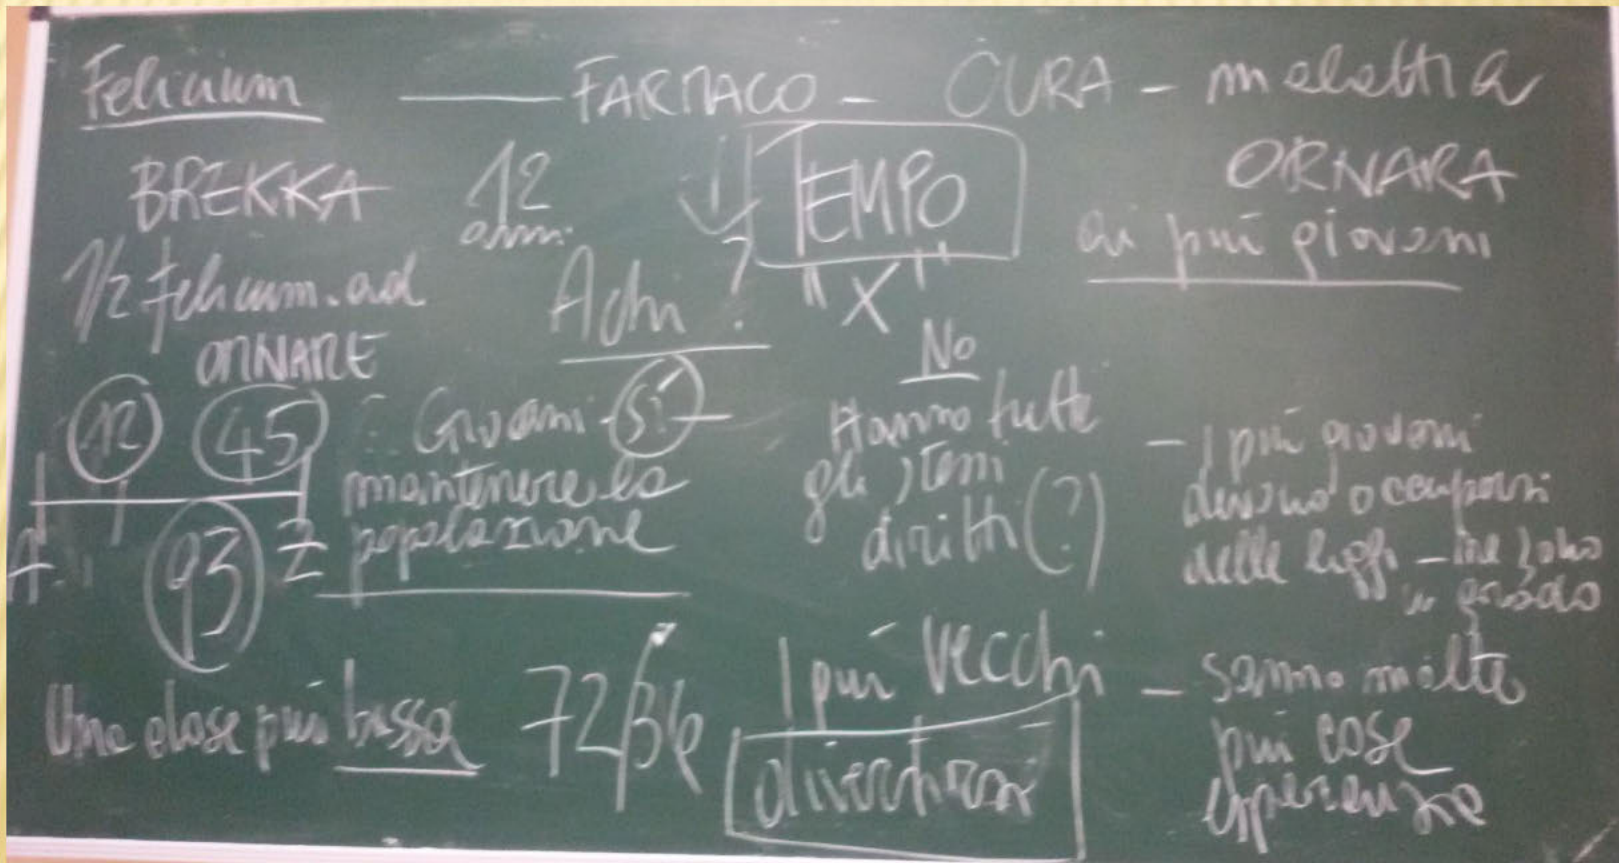 Felicium — FARMACO - CURA - malattia
BREKKA 12 anni TEMPO ORNARA
ai più giovani
1/2 felicium. ad
ORNARE
A chi? "X"
No
12 45 Giovani sì
mantenere la
popolazione
93
Hanno tutti
gli stessi
diritti (?)
- I più giovani
devono occuparsi
delle leggi - ne sono
in grado
Una dose più bassa 72/36
I più vecchi
divertirsi
- sanno molte
più cose
esperienze